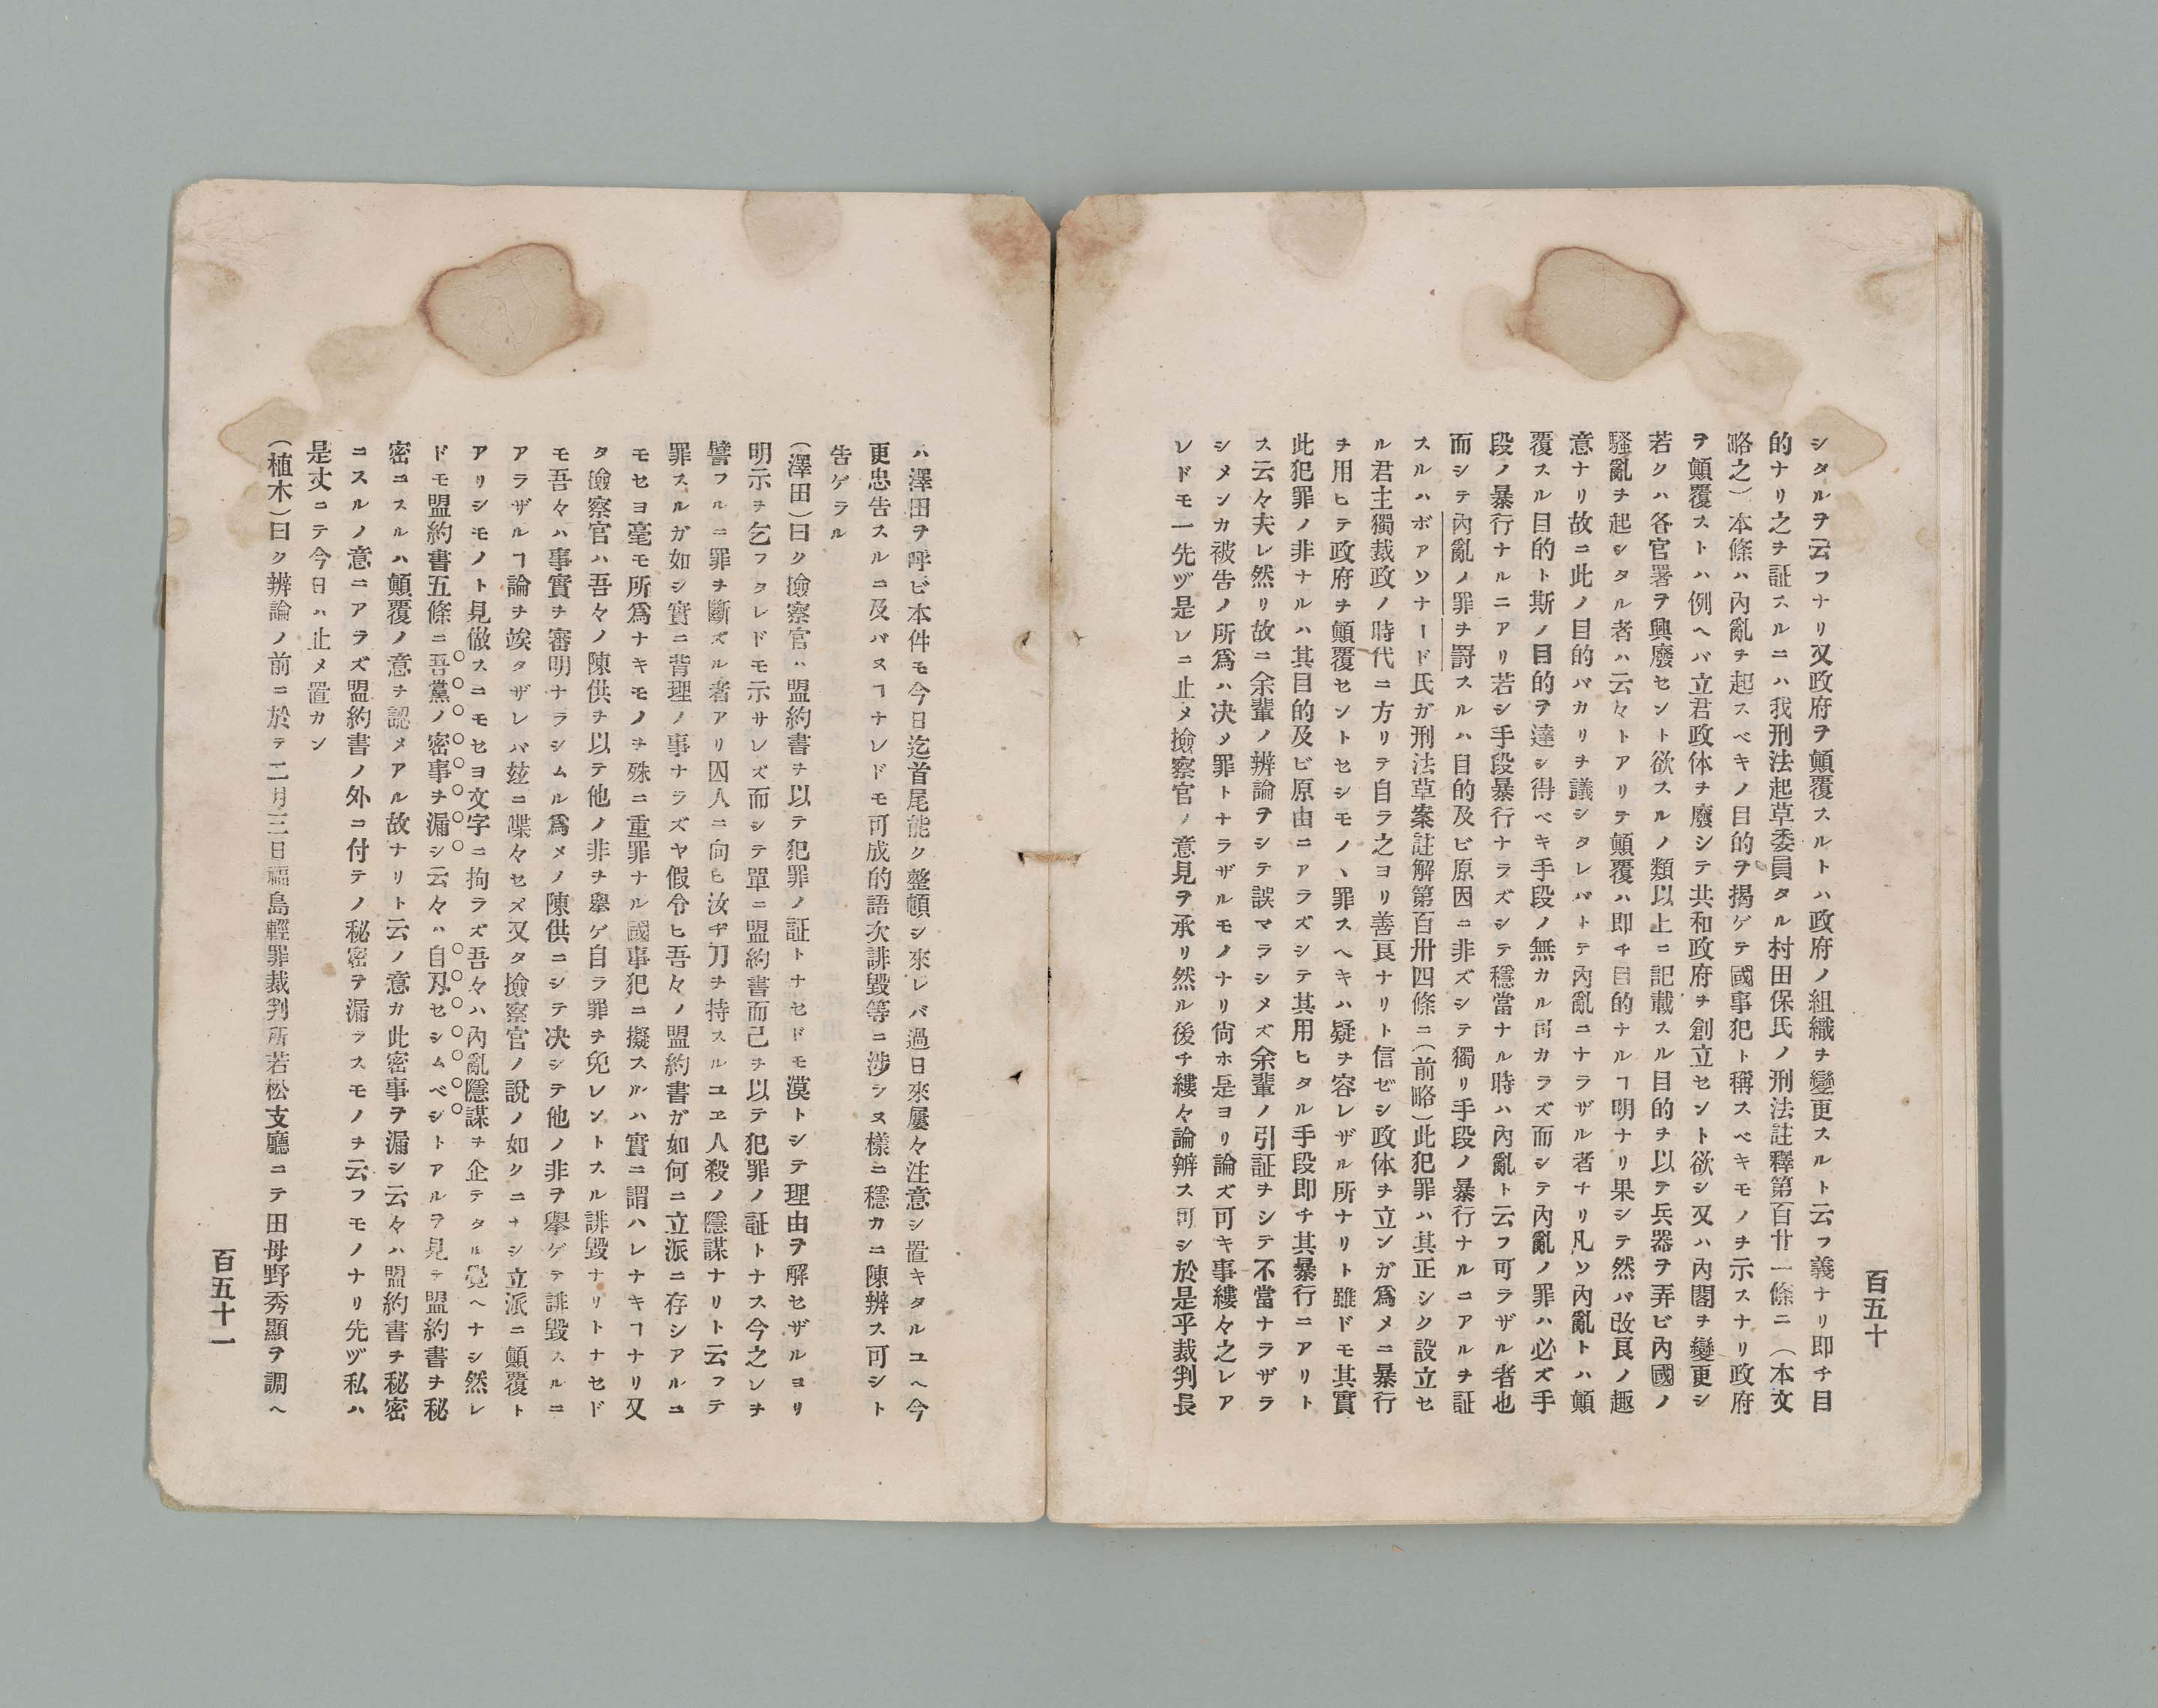 百五十
シタルヲ云フナリ又政府ヲ顛覆スルトハ政府ノ組織ヲ變更スルト云フ義ナリ即チ目
的ナリ之ヲ証スルニハ我刑法起草委員タル村田保氏ノ刑法註釋第百廿一條ニ（本文
略之）本條ハ內亂ヲ起スベキノ目的ヲ揭ゲテ國事犯ト稱スベキモノヲ示スナリ政府
ヲ顛覆ストハ例ヘバ立君政体ヲ廢シテ共和政府ヲ創立セント欲シ又ハ內閣ヲ變更シ
若クハ各官署ヲ興廢セント欲スルノ類以上ニ記載スル目的ヲ以テ兵器ヲ弄ビ內國ノ
騷亂ヲ起シタル者ハ云々トアリテ顛覆ハ即チ目的ナルヿ明ナリ果シテ然バ改良ノ趣
意ナリ故ニ此ノ目的バカリヲ議シタレバトテ內亂ニナラザル者ナリ凡ソ內亂トハ顛
覆スル目的ト斯ノ目的ヲ達シ得ベキ手段ノ無カル可カラズ而シテ內亂ノ罪ハ必ズ手
段ノ暴行ナルニアリ若シ手段暴行ナラズシテ穩當ナル時ハ內亂ト云フ可ラザル者也
而シテ內亂ノ罪ヲ罸スルハ目的及ビ原因ニ非ズシテ獨リ手段ノ暴行ナルニアルヲ証
スルハボアソナード氏ガ刑法草案註解第百卅四條ニ（前略）此犯罪ハ其正シク設立セ
ル君主獨裁政ノ時代ニ方リテ自ラ之ヨリ善良ナリト信ゼシ政体ヲ立ンガ爲メニ暴行
ヲ用ヒテ政府ヲ顛覆セントセシモノヽ罪スヘキハ疑ヲ容レザル所ナリト雖ドモ其實
此犯罪ノ非ナルハ其目的及ビ原由ニアラズシテ其用ヒタル手段即チ其暴行ニアリト
ス云々夫レ然リ故ニ余輩ノ辨論ヲシテ誤マラシメズ余輩ノ引証ヲシテ不當ナラザラ
シメンカ被告ノ所爲ハ决メ罪トナラザルモノナリ尙ホ是ヨリ論ズ可キ事縷々之レア
レドモ一先ヅ是レニ止メ撿察官ノ意見ヲ承リ然ル後チ縷々論辨ス可シ於是乎裁判長
ハ澤田ヲ呼ビ本件モ今日迄首尾能ク整頓シ來レバ過日來屢々注意シ置キタルユヘ今
更忠告スルニ及バヌヿナレドモ可成的語次誹毀等ニ涉シヌ樣ニ穩カニ陳辨ス可シト
告ゲラル
（澤田）曰ク撿察官ハ盟約書ヲ以テ犯罪ノ証トナセドモ漠トシテ理由ヲ解セザルヨリ
明示ヲ乞フタレドモ示サレズ而シテ單ニ盟約書而己ヲ以テ犯罪ノ証トナス今之レヲ
譬フルニ罪ヲ斷ズル者アリ囚人ニ向ヒ汝ヂ刀ヲ持スルユヱ人殺ノ隱謀ナリト云フテ
罪スルガ如シ實ニ背理ノ事ナラズヤ假令ヒ吾々ノ盟約書ガ如何ニ立派ニ存シアルニ
モセヨ毫モ所爲ナキモノヲ殊ニ重罪ナル國事犯ニ擬スルハ實ニ謂ハレナキヿナリ又
タ撿察官ハ吾々ノ陳供ヲ以テ他ノ非ヲ擧ゲ自ラ罪ヲ免レントスル誹毀ナリトナセド
モ吾々ハ事實ヲ審明ナラシムル爲メノ陳供ニシテ决シテ他ノ非ヲ擧ゲテ誹毀スルニ
アラザルヿ論ヲ竢タザレバ玆ニ喋々セズ又タ撿察官ノ說ノ如クニナシ立派ニ顛覆ト
アリシモノト見做スニモセヨ文字ニ拘ラズ吾々ハ內亂隱謀ヲ企テタル覺ヘナシ然レ
ドモ盟約書五條ニ吾黨ノ密事ヲ漏シ云々ハ自刄セシムベシトアルヲ見テ盟約書ヲ秘
密ニスルハ顛覆ノ意ヲ認メアル故ナリト云ノ意カ此密事ヲ漏シ云々ハ盟約書ヲ秘密
ニスルノ意ニアラズ盟約書ノ外ニ付テノ秘密ヲ漏ラスモノヲ云フモノナリ先ヅ私ハ
是丈ニテ今日ハ止メ置カン
（植木）曰ク辨論ノ前ニ於テ二月三日福島輕罪裁判所若松支廳ニテ田母野秀顯ヲ調ヘ
百五十一